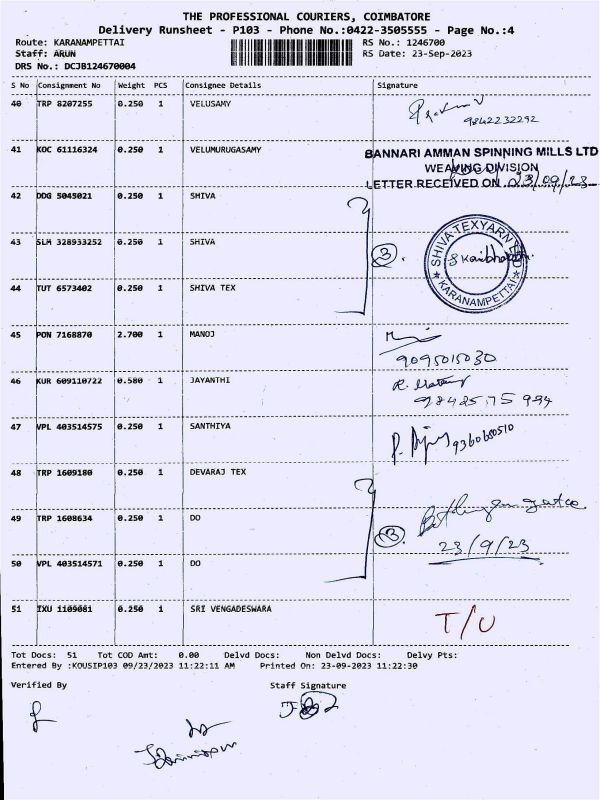 THE PROFESSIONAL COURIERS, COIMBATORE
Delivery Runsheet - P103 - Phone No.:0422-3505555 - Page No.:4
Route: KARANAMPETTAI RS No.: 1246700
Staff: ARUN RS Date: 23-Sep-2023
DRS No.: DCJB124670004
S No Consignment No Weight PCS Consignee Details Signature
40 TRP 8207255 0.250 1 VELUSAMY
9842232292
41 KOC 61116324 0.250 1 VELUMURUGASAMY
BANNARI AMMAN SPINNING MILLS LTD
WEAVING DIVISION
LETTER RECEIVED ON 23/09/23
42 DDG 5045021 0.250 1 SHIVA
43 SLM 328933252 0.250 1 SHIVA 3.
SHIVA TEXYARN LTD
KARANAMPETTAI
44 TUT 6573402 0.250 1 SHIVA TEX
45 PON 7168870 2.700 1 MANOJ
9095015030
46 KUR 609110722 0.580 1 JAYANTHI
98425 75 994
47 VPL 403514575 0.250 1 SANTHIYA
9360680510
48 TRP 1609180 0.250 1 DEVARAJ TEX
49 TRP 1608634 0.250 1 DO 3.
23/9/23
50 VPL 403514571 0.250 1 DO
51 TXU 1109081 0.250 1 SRI VENGADESWARA T/U
Tot Docs: 51 Tot COD Amt: 0.00 Delvd Docs: Non Delvd Docs: Delvy Pts:
Entered By :KOUSIP103 09/23/2023 11:22:11 AM Printed On: 23-09-2023 11:22:30
Verified By Staff Signature